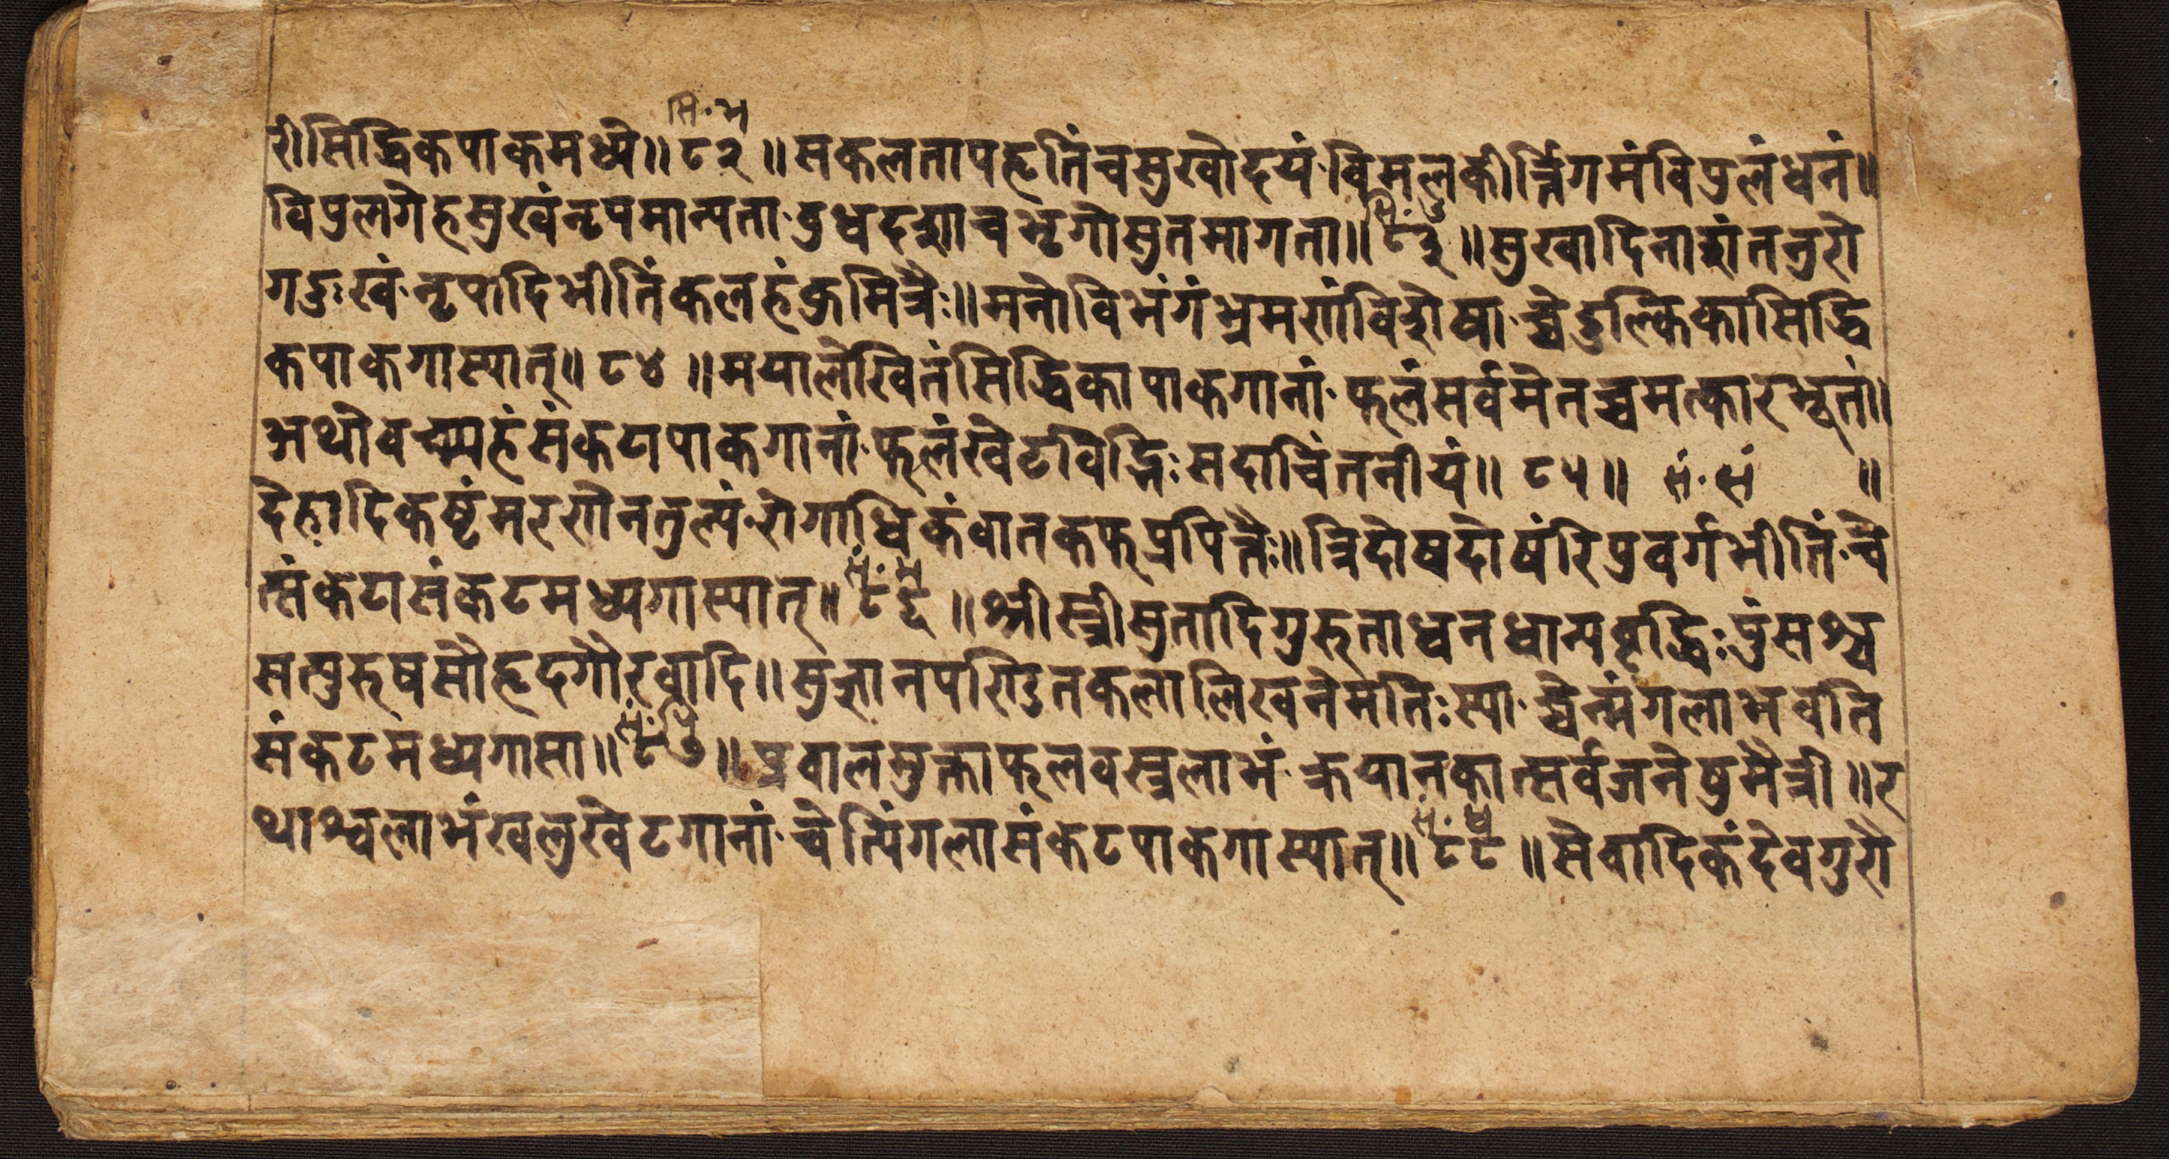 सि॰भ
री सिद्धिकपाकमध्ये॥ ८२ ॥ सकलतापहृतिं च सुखोदयं विमलकीर्त्तिगमं विपुलं धनं॥
विपुलगेहसुखं नृपमान्यता बुधदशा च भृगोसुतमागता॥ ८३ ॥ सुखादिनाशं तनुरो
गदुःखं नृपादिभीतिं कलहं कुमित्रैः॥ मनोविभंगं भ्रमणं विशेषा च्चेदुल्किका सिद्धि
कपाकगा स्यात्॥ ८४ ॥ मया लेखितं सिद्धिकापाकगानां फलं सर्वमेतच्चमत्कारभूतं॥
अथो वच्म्यहं संकटापाकगानां फलं खेटविद्भिः सदा चिंतनीयं॥ ८५॥ सं॰ सं ॥
देहादिकष्टं मरणेन तुल्यं रोगाधिकं वातकफप्रपित्तैः॥ त्रिदोषदोषं रिपुवर्गभीतिं चे
त्संकटा संकटमध्यगा स्यात्॥ ८६ ॥ श्रीस्त्रीसुतादिगुरुता धनधान्यवृद्धिः पुंसश्च
सत्पुरुषसौहृदगौरवादि॥ सुज्ञानपण्डितकलालिखने मतिः स्या च्चेन्मंगला भवति
संकटमध्यगा सा॥ ८७ ॥ प्रवालमुक्ताफलवस्त्रलाभं क्रयानकात्सर्वजनेषु मैत्री॥ र
थाश्वलाभं खलु खेटगानां चेत्पिंगला संकटपाकगा स्यात्॥ ८८ ॥ सेवादिकं देवगुरौ